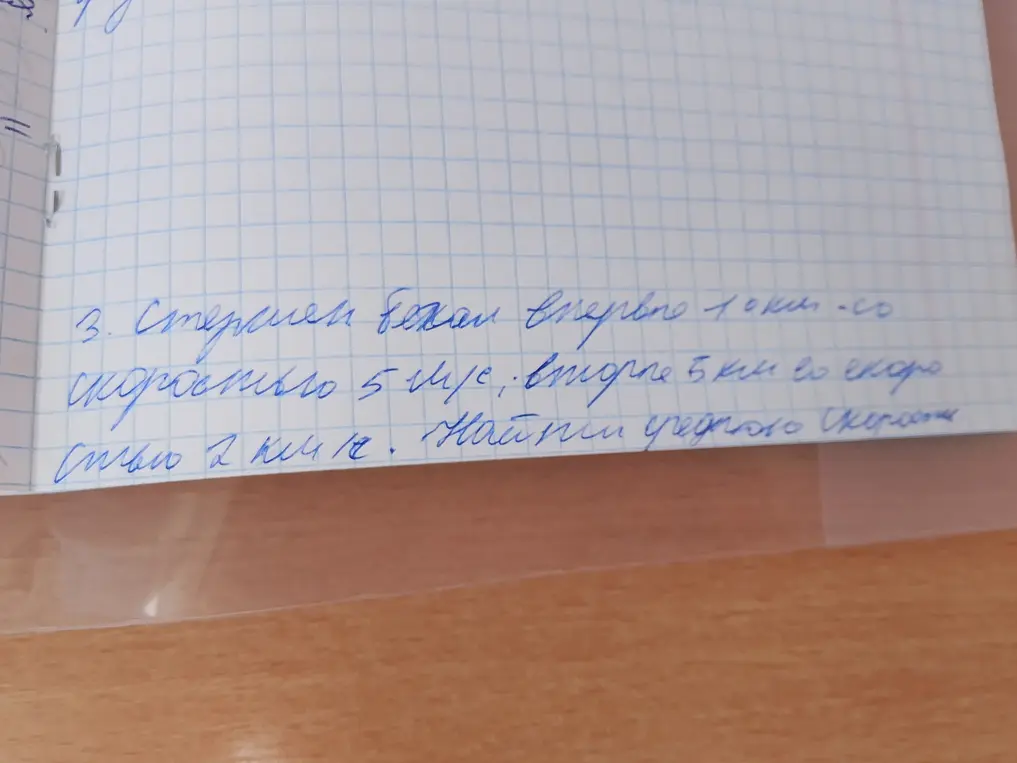 3. Стержен бежал вперв​ые 10 км со
скоростью 5 м/с, вторые 5 км со скоро
стью 2 км/с. Найти среднюю скорость